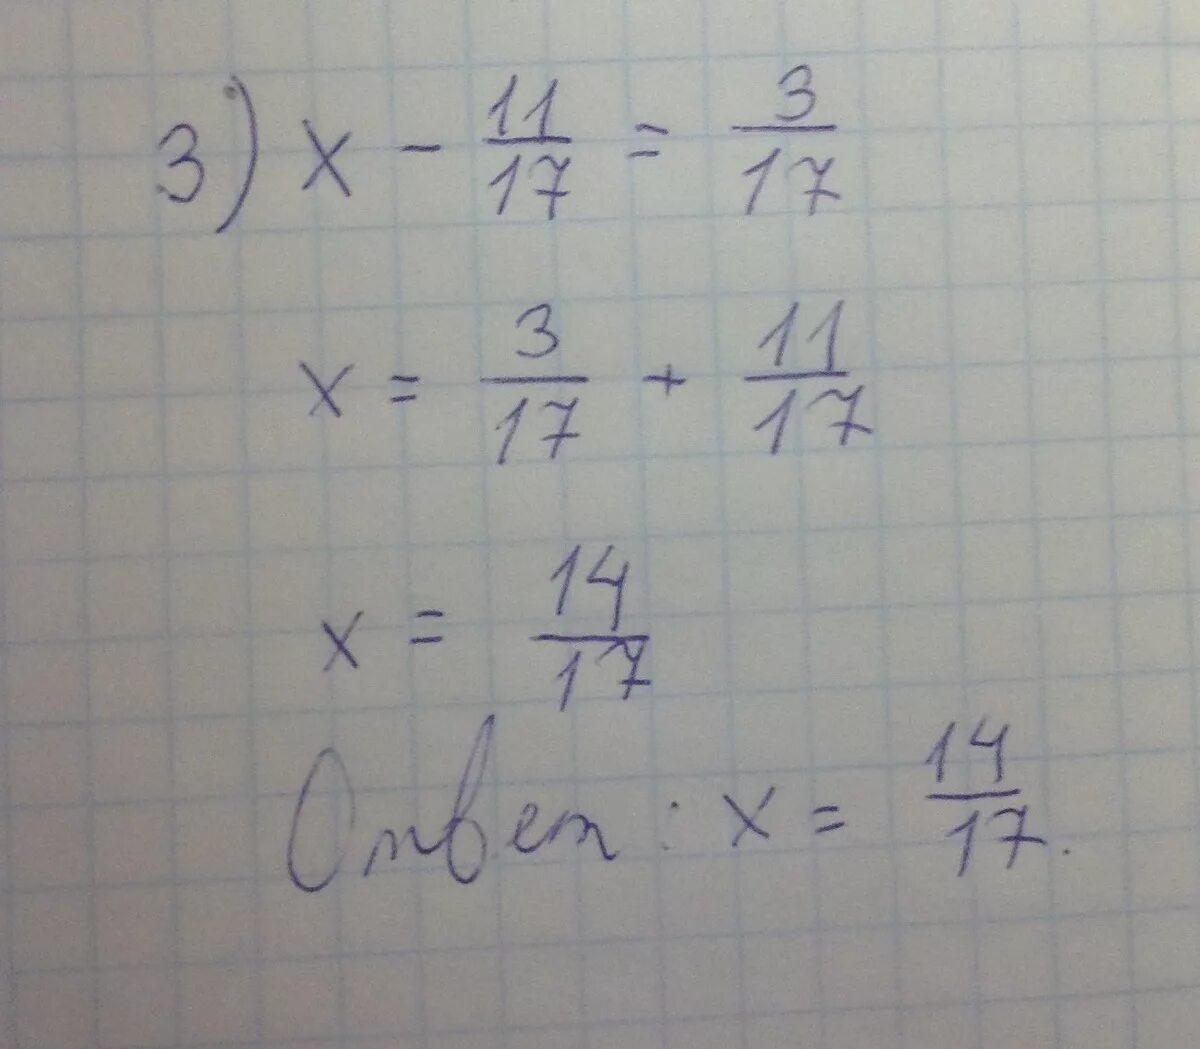 3) x - 11/17 = 3/17
x = 3/17 + 11/17
x = 14/17
Ответ: x = 14/17.